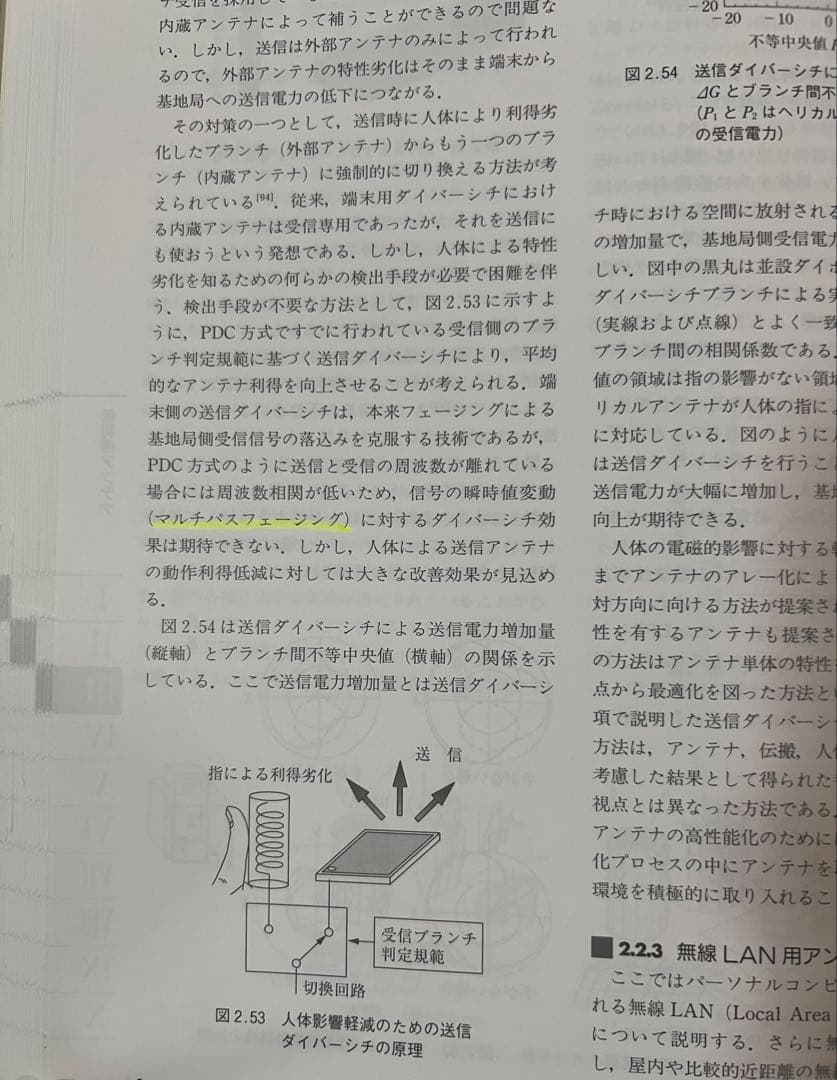 内蔵アンテナによって補うことができるので問題な
い．しかし，送信は外部アンテナのみによって行われ
るので，外部アンテナの特性劣化はそのまま端末から
基地局への送信電力の低下につながる．
その対策の一つとして，送信時に人体により利得劣
化したブランチ（外部アンテナ）からもう一つのブラ
ンチ（内蔵アンテナ）に強制的に切り換える方法が考
えられている[94]．従来，端末用ダイバーシチにおけ
る内蔵アンテナは受信専用であったが，それを送信に
も使おうという発想である．しかし，人体による特性
劣化を知るための何らかの検出手段が必要で困難を伴
う．検出手段が不要な方法として，図2.53に示すよ
うに，PDC方式ですでに行われている受信側のブラ
ンチ判定規範に基づく送信ダイバーシチにより，平均
的なアンテナ利得を向上させることが考えられる．端
末側の送信ダイバーシチは，本来フェージングによる
基地局側受信信号の落込みを克服する技術であるが，
PDC方式のように送信と受信の周波数が離れている
場合には周波数相関が低いため，信号の瞬時値変動
（マルチパスフェージング）に対するダイバーシチ効
果は期待できない．しかし，人体による送信アンテナ
の動作利得低減に対しては大きな改善効果が見込め
る．
図2.54は送信ダイバーシチによる送信電力増加量
（縦軸）とブランチ間不等中央値（横軸）の関係を示
している．ここで送信電力増加量とは送信ダイバーシ
送 信
指による利得劣化
受信ブランチ
判定規範
切換回路
図2.53 人体影響軽減のための送信
ダイバーシチの原理
－20
－20 －10 0
不等中央値
図2.54 送信ダイバーシチに
ΔGとブランチ間不
（P1とP2はヘリカル
の受信電力）
チ時における空間に放射される
の増加量で，基地局側受信電力
しい．図中の黒丸は並設ダイポ
ダイバーシチブランチによる実
（実線および点線）とよく一致
ブランチ間の相関係数である．
値の領域は指の影響がない領域
リカルアンテナが人体の指によ
に対応している．図のように人
は送信ダイバーシチを行うこ
送信電力が大幅に増加し，基地
向上が期待できる．
人体の電磁的影響に対する軽
までアンテナのアレー化によ
対方向に向ける方法が提案され
性を有するアンテナも提案さ
の方法はアンテナ単体の特性
点から最適化を図った方法とい
項で説明した送信ダイバーシ
方法は，アンテナ，伝搬，人体
考慮した結果として得られた
視点とは異なった方法である．
アンテナの高性能化のためには
化プロセスの中にアンテナを
環境を積極的に取り入れるこ
■2.2.3 無線LAN用アン
ここではパーソナルコンピ
れる無線LAN（Local Area
について説明する．さらに無
し，屋内や比較的近距離の無線